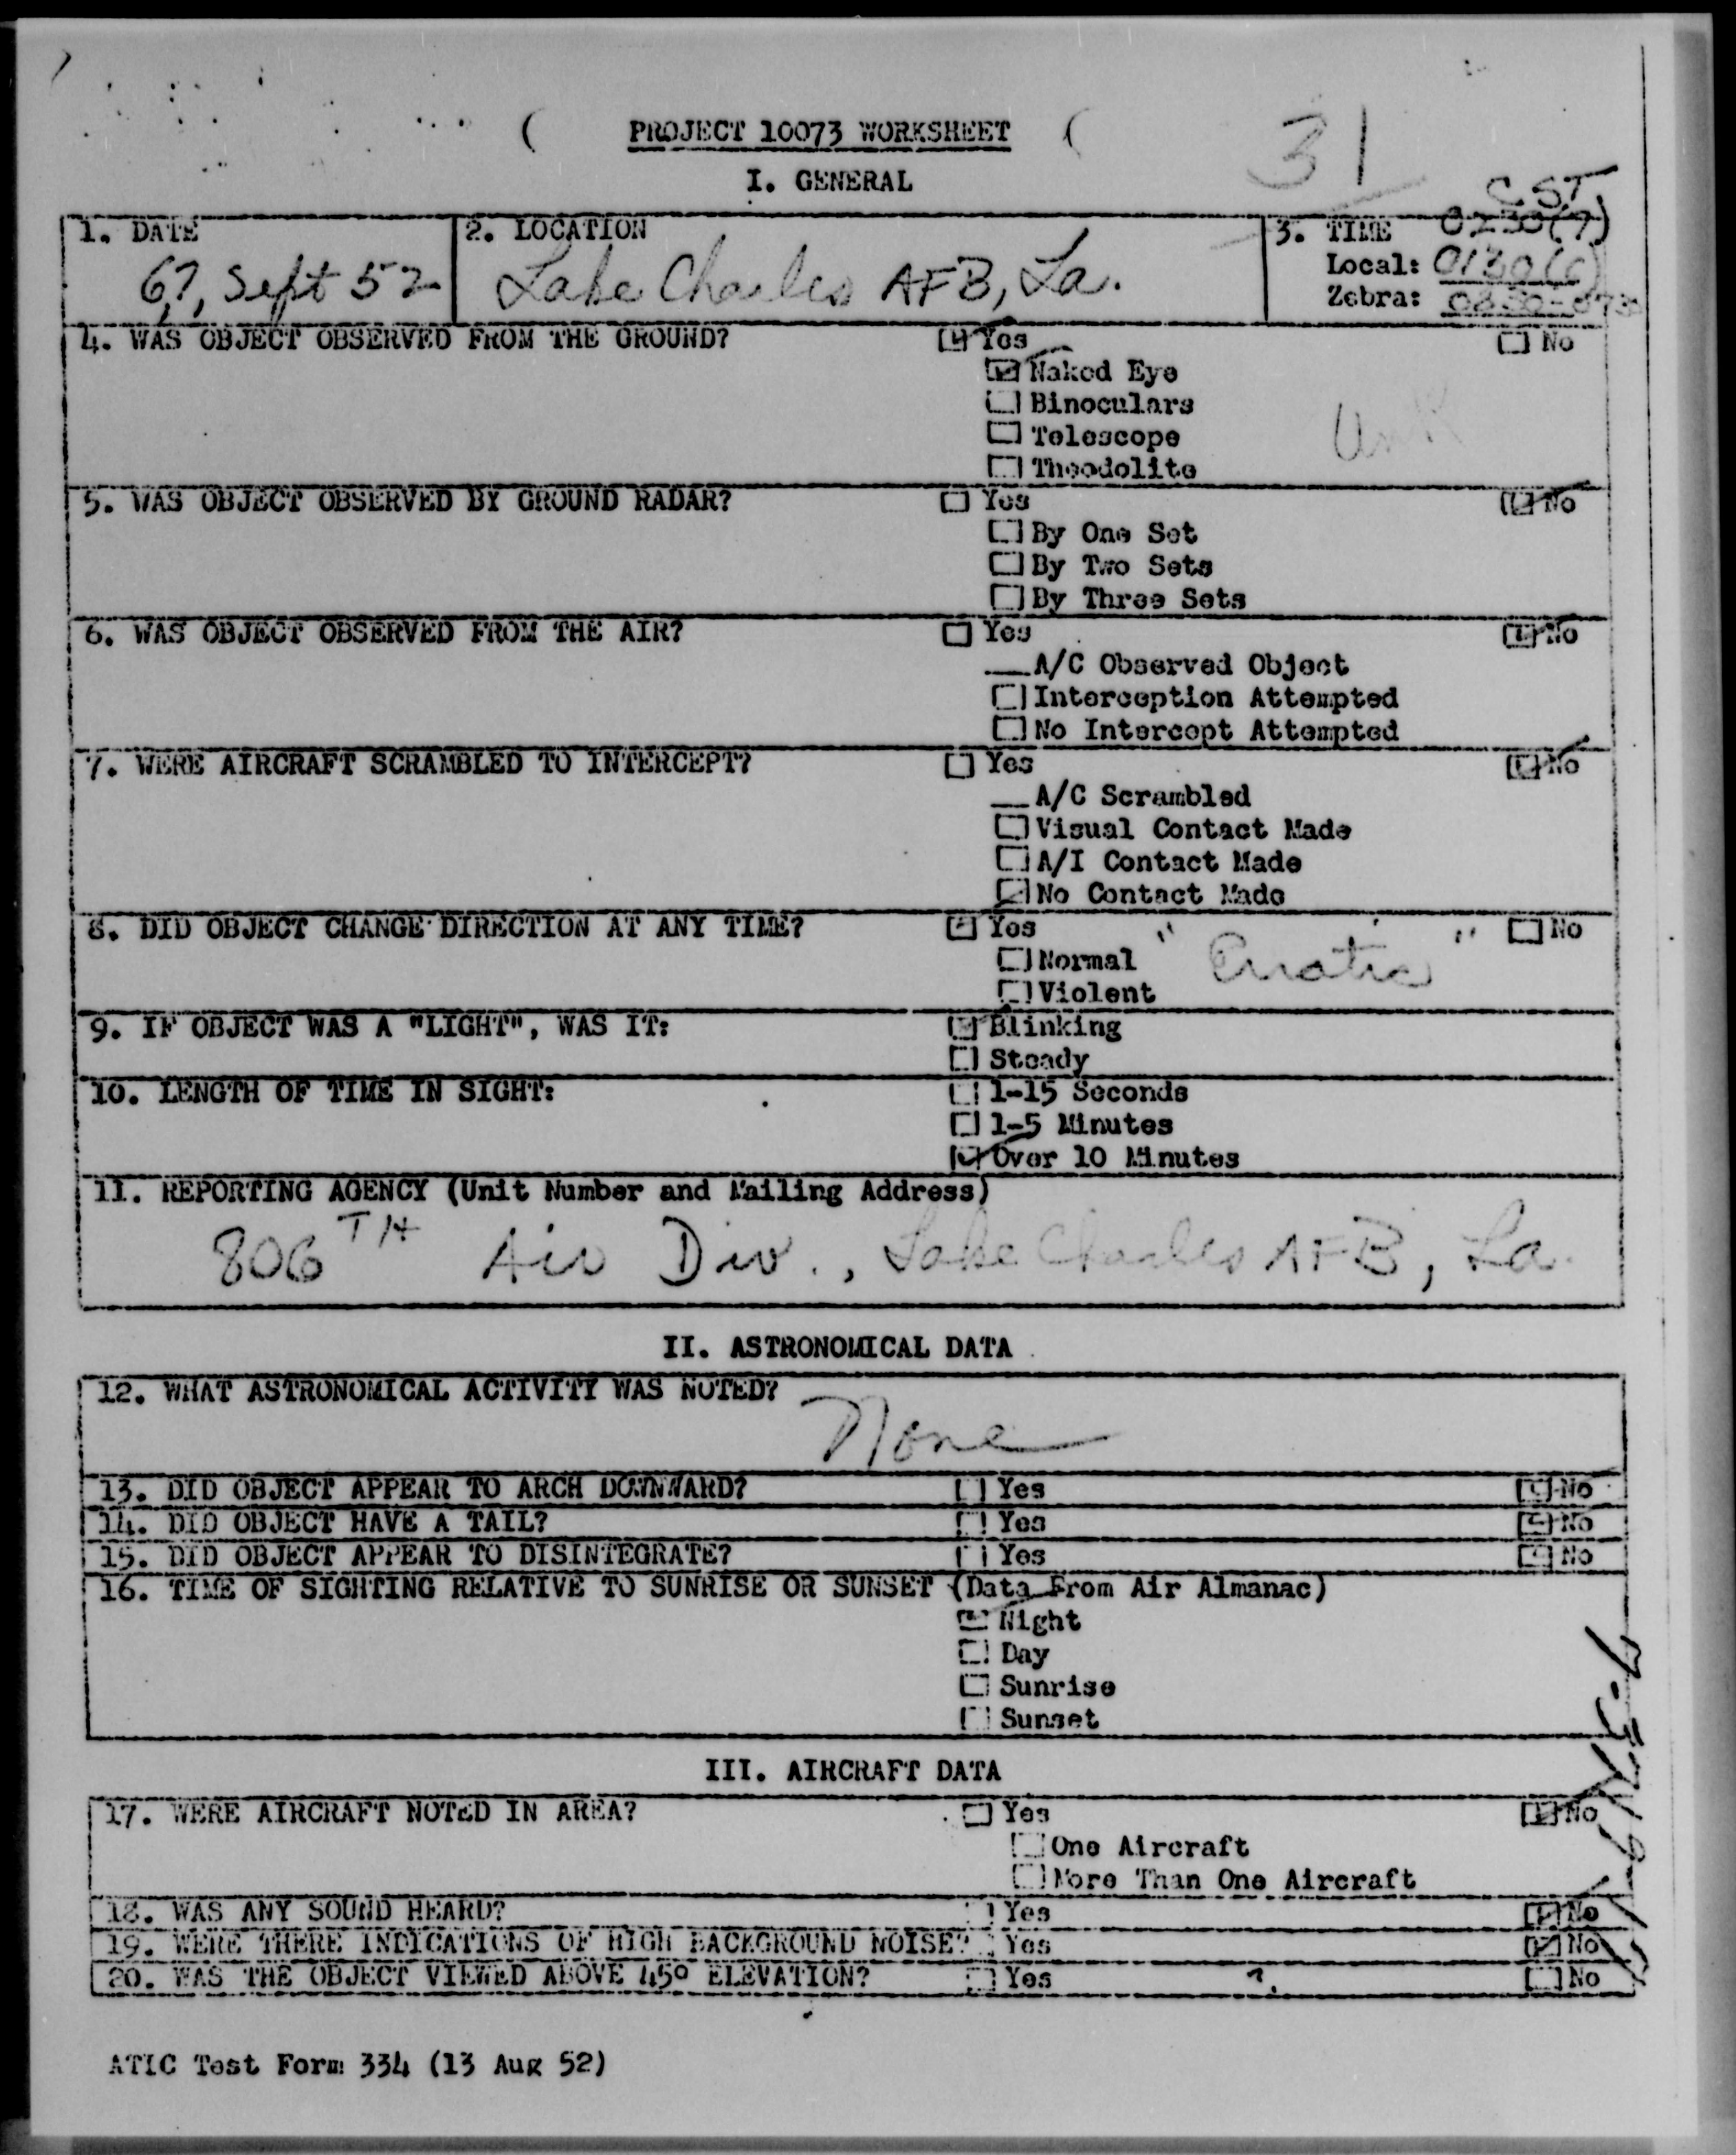 PROJECT 10073 WORKSHEET
31
I. GENERAL
CST
1. DATE
6,7, Sept 52
2. LOCATION
Lake Charles AFB, La.
3. TIME 0230(7)
Local: 0130(6)
Zebra:
4. WAS OBJECT OBSERVED FROM THE GROUND? Yes No
Naked Eye
Binoculars
Telescope
Unk
Theodolite
5. WAS OBJECT OBSERVED BY GROUND RADAR? Yes No
By One Set
By Two Sets
By Three Sets
6. WAS OBJECT OBSERVED FROM THE AIR? Yes No
A/C Observed Object
Interception Attempted
No Intercept Attempted
7. WERE AIRCRAFT SCRAMBLED TO INTERCEPT? Yes No
A/C Scrambled
Visual Contact Made
A/I Contact Made
No Contact Made
8. DID OBJECT CHANGE DIRECTION AT ANY TIME? Yes No
Normal "Erratic"
Violent
9. IF OBJECT WAS A "LIGHT", WAS IT: Blinking
Steady
10. LENGTH OF TIME IN SIGHT: 1-15 Seconds
1-5 Minutes
Over 10 Minutes
11. REPORTING AGENCY (Unit Number and Mailing Address)
806TH Air Div., Lake Charles AFB, La.
II. ASTRONOMICAL DATA
12. WHAT ASTRONOMICAL ACTIVITY WAS NOTED?
None
13. DID OBJECT APPEAR TO ARCH DOWNWARD? Yes No
14. DID OBJECT HAVE A TAIL? Yes No
15. DID OBJECT APPEAR TO DISINTEGRATE? Yes No
16. TIME OF SIGHTING RELATIVE TO SUNRISE OR SUNSET (Data From Air Almanac)
Night
Day
Sunrise
Sunset
III. AIRCRAFT DATA
17. WERE AIRCRAFT NOTED IN AREA? Yes No
One Aircraft
More Than One Aircraft
18. WAS ANY SOUND HEARD? Yes No
19. WERE THERE INDICATIONS OF HIGH BACKGROUND NOISE? Yes No
20. WAS THE OBJECT VIEWED ABOVE 45° ELEVATION? Yes ? No
ATIC Test Form 334 (13 Aug 52)